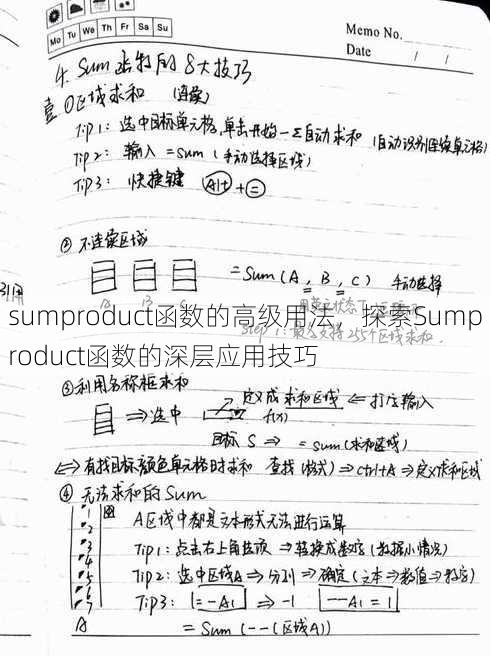 Mo Tu We Th Fr Sa Su
Memo No.
Date / /
4. Sum函数的8大技巧
①区域求和 (连续)
Tip1: 选中目标单元格,单击开始-Σ自动求和 (自动识别连续单元格)
Tip2: 输入 =sum (手动选择区域)
Tip3: 快捷键 Alt + =
②不连续区域
=Sum(A, B, C) 手动选择
A B C
sumproduct函数的高级用法、探索Sump
roduct函数的深层应用技巧
Step1: 最多支持255个区域求和.
③利用名称框求和
⇒选中 定义成求和区域 ⇐打应输入
f(x)
目标 S ⇒ =sum(求和区域)
⇔有找目标颜色单元格时求和 查找(格式)⇒ctrl+A⇒定义求和区域
④ 无法求和的Sum
A区域中都是文本形式无法进行运算
Tip1: 点击右上角 ⇒转换成数字(数据小情况)
Tip2: 选中区域A⇒分列⇒确定(文本⇒数值⇒数字)
Tip3: 1=-A1 ⇒-1 --A1=1
A =Sum(--(区域A))